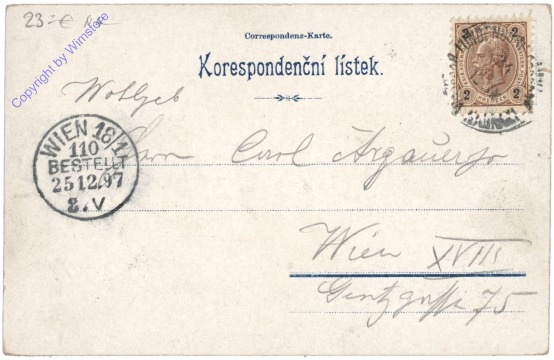 23.- €
Copyright by Wimstore
Correspondenz-Karte.
Korespondenční lístek.
2 2
Wohlgeb
WIEN 18/1
110
BESTELLT
25 12.97
8. V
Herrn Carl
Wien XVIII
Gentzgasse 75